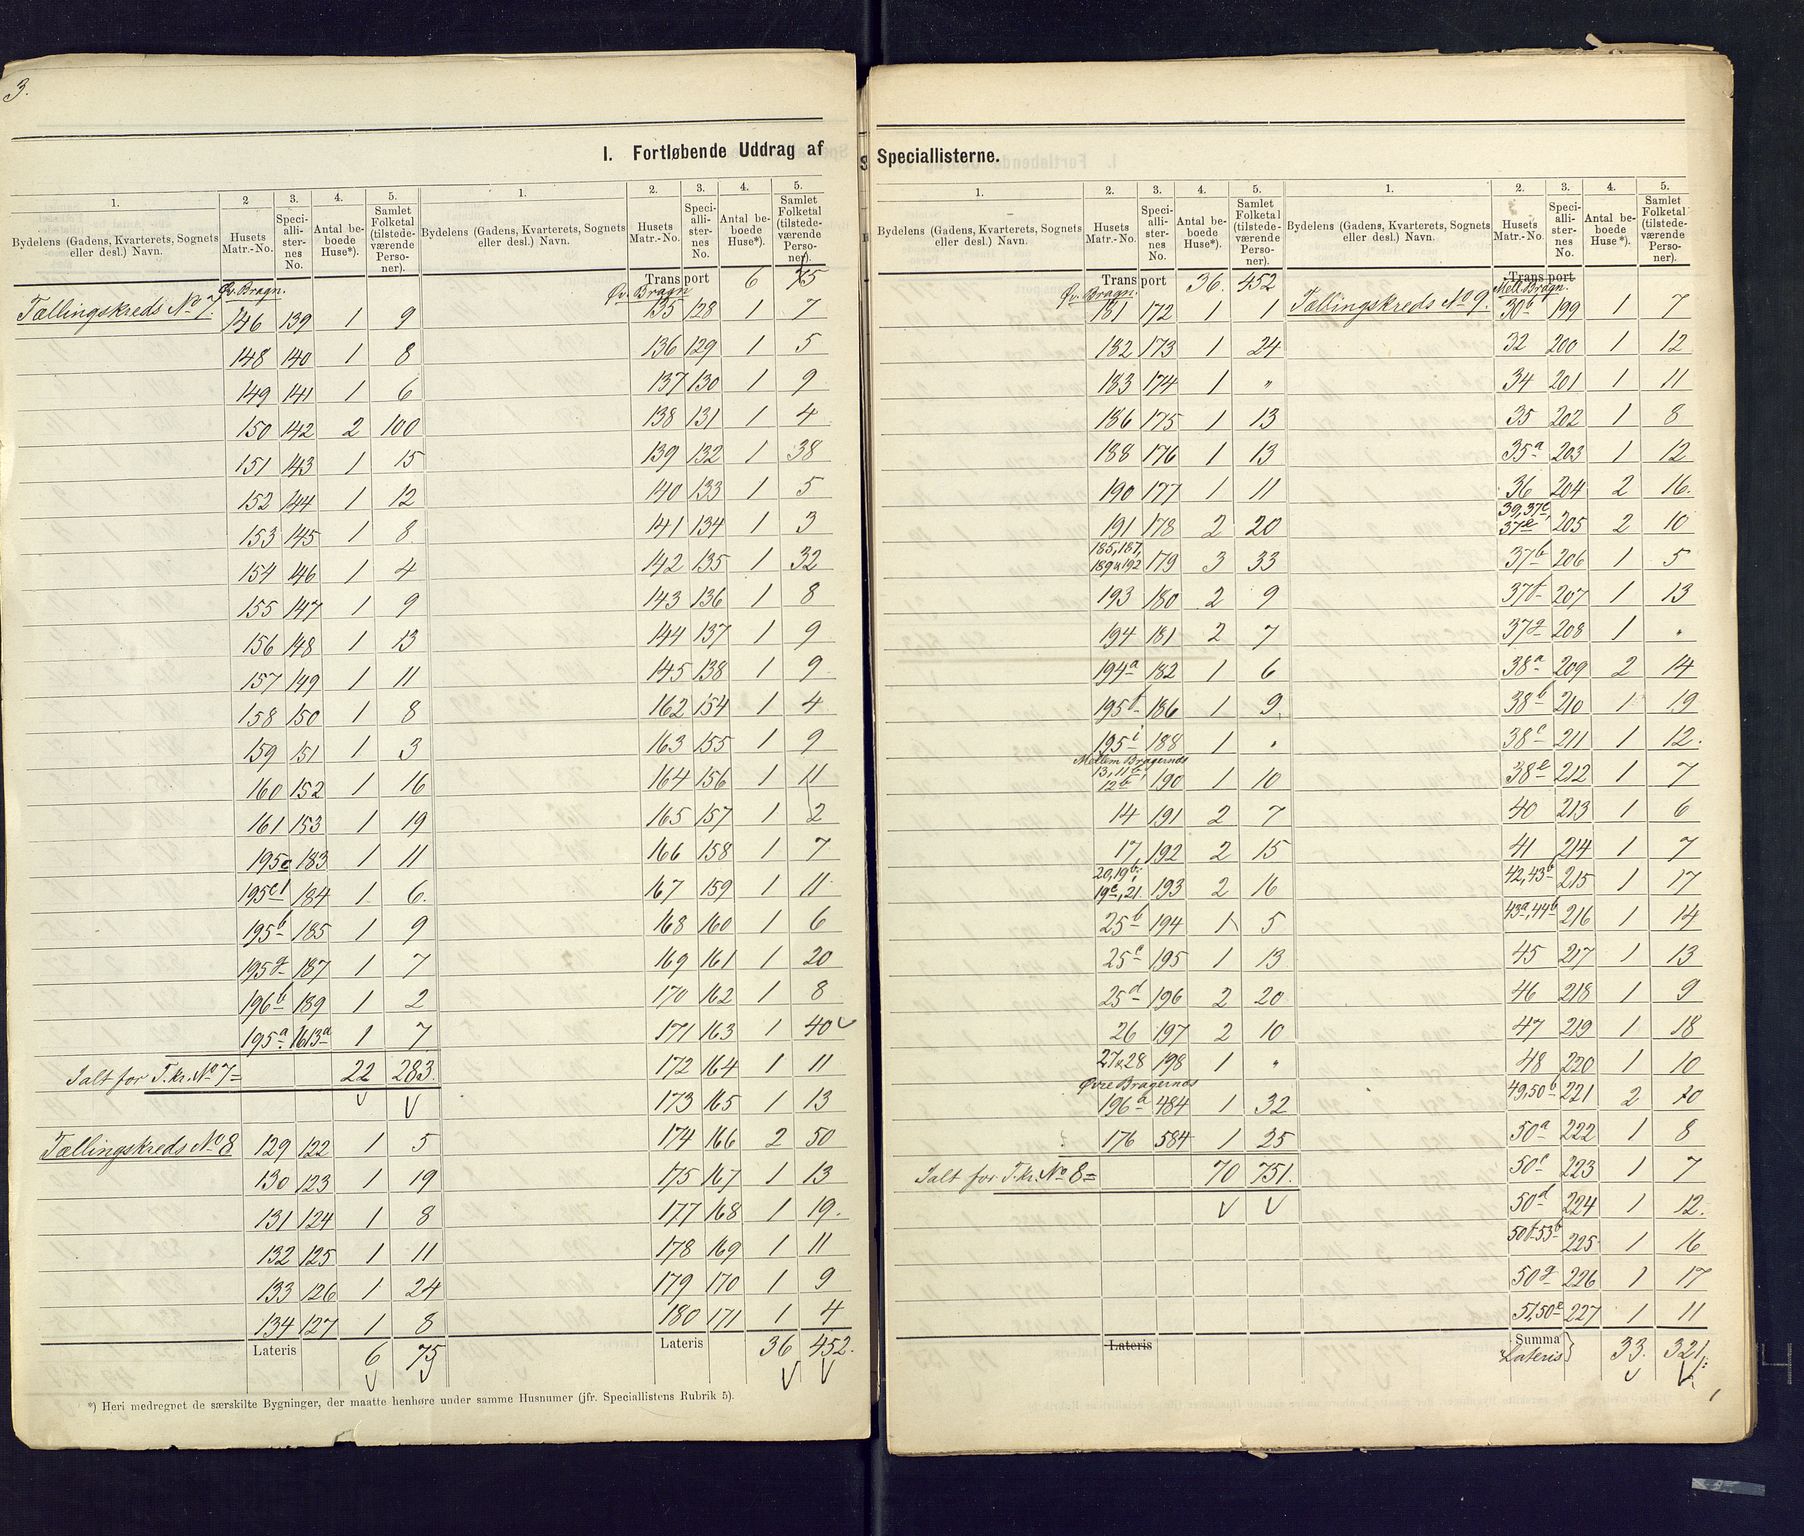 3.
I. Fortløbende Uddrag af
1. 2 3. 4. 5.
Bydelens (Gadens, Kvarterets, Sognets eller desl.) Navn. Husets Matr.-No. Speciallisternes No. Antal beboede Huse*). Samlet Folketal (tilstedeværende Personer).
Øv. Bragn.
Tællingskreds No 7. 146 139 1 9
148 140 1 8
149 141 1 6
150 142 2 100
151 143 1 15
152 144 1 12
153 145 1 8
154 146 1 4
155 147 1 9
156 148 1 13
157 149 1 11
158 150 1 8
159 151 1 3
160 152 1 16
161 153 1 19
195c 183 1 11
195e1 184 1 6.
195b 185 1 9
195g 187 1 7
196b 189 1 2
195a 1613a 1 7
Ialt for T.kr. No 7 = 22 283.
Tællingskreds No 8 129 122 1 5
130 123 1 19
131 124 1 8
132 125 1 11
133 126 1 24
134 127 1 8
Lateris 6 75
1. 2. 3. 4. 5.
Bydelens (Gadens, Kvarterets, Sognets eller desl.) Navn. Husets Matr.-No. Speciallisternes No. Antal beboede Huse*). Samlet Folketal (tilstedeværende Personer).
Transport 6 75
Øv. Bragn
135 128 1 7
136 129 1 5
137 130 1 9
138 131 1 4
139 132 1 38
140 133 1 5
141 134 1 3
142 135 1 32
143 136 1 8
144 137 1 9
145 138 1 9
162 154 1 4
163 155 1 9
164 156 1 11
165 157 1 2
166 158 1 7
167 159 1 11
168 160 1 6
169 161 1 20
170 162 1 8
171 163 1 40
172 164 1 11
173 165 1 13
174 166 2 50
175 167 1 13
177 168 1 19.
178 169 1 11
179 170 1 9
180 171 1 4
Lateris 36 452.
*) Heri medregnet de særskilte Bygninger, der maatte henhøre under samme Husnumer (jfr. Speciallistens Rubrik 5).
Speciallisterne.
1. 2. 3. 4. 5.
Bydelens (Gadens, Kvarterets, Sognets eller desl.) Navn. Husets Matr.-No. Speciallisternes No. Antal beboede Huse*). Samlet Folketal (tilstedeværende Personer).
Transport 36. 452
Øv. Bragn.
181 172 1 1
182 173 1 24
183 174 1 "
186 175 1 13
188 176 1 13
190 177 1 11
191 178 2 20
185, 187, 189 u 192 179 3 33
193 180 2 9
194 181 2 7
194a 182 1 6
195f 186 1 9.
195i 188 1 "
Mellem Bragernæs
13, 11b, 12b 190 1 10
14 191 2 7
17 192 2 15
20, 19b, 19c, 21. 193 2 16
25b 194 1 5
25c 195 1 13
25d 196 2 20
26 197 2 10
27 u 28 198 1 "
Øvre Bragernæs
196a 484 1 32
176 584 1 25
Ialt for T.kr. No 8 = 70 751.
Lateris
1. 2. 3. 4. 5.
Bydelens (Gadens, Kvarterets, Sognets eller desl.) Navn. Husets Matr.-No. Speciallisternes No. Antal beboede Huse*). Samlet Folketal (tilstedeværende Personer).
Transport
Mell. Bragn.
Tællingskreds No 9. 30b 199 1 7
32 200 1 12
34 201 1 11
35 202 1 8
35a 203 1 12
36 204 2 16.
39, 37c, 37e 205 2 10
37b 206 1 5
37f 207 1 13
37g 208 1 "
38a 209 2 14
38b 210 1 19
38c 211 1 12.
38e 212 1 7
40 213 1 6
41 214 1 7
42, 43b 215 1 17
43a, 44b 216 1 14
45 217 1 13
46 218 1 9
47 219 1 18
48 220 1 10
49, 50b 221 2 10
50a 222 1 8
50c 223 1 7
50d 224 1 12.
50f 53b 225 1 16
50g 226 1 17
51, 50e 227 1 11
Summa Lateris 33. 321